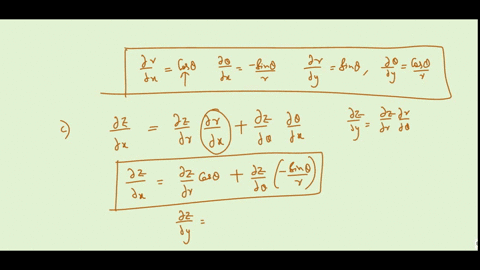 ∂r/∂x = Cosθ ∂θ/∂x = -Sinθ/r ∂r/∂y = Sinθ, ∂θ/∂y = Cosθ/r
c) ∂z/∂x = ∂z/∂r ∂r/∂x + ∂z/∂θ ∂θ/∂x ∂z/∂y = ∂z/∂r ∂r/∂θ
∂z/∂x = ∂z/∂r Cosθ + ∂z/∂θ (-Sinθ/r)
∂z/∂y =